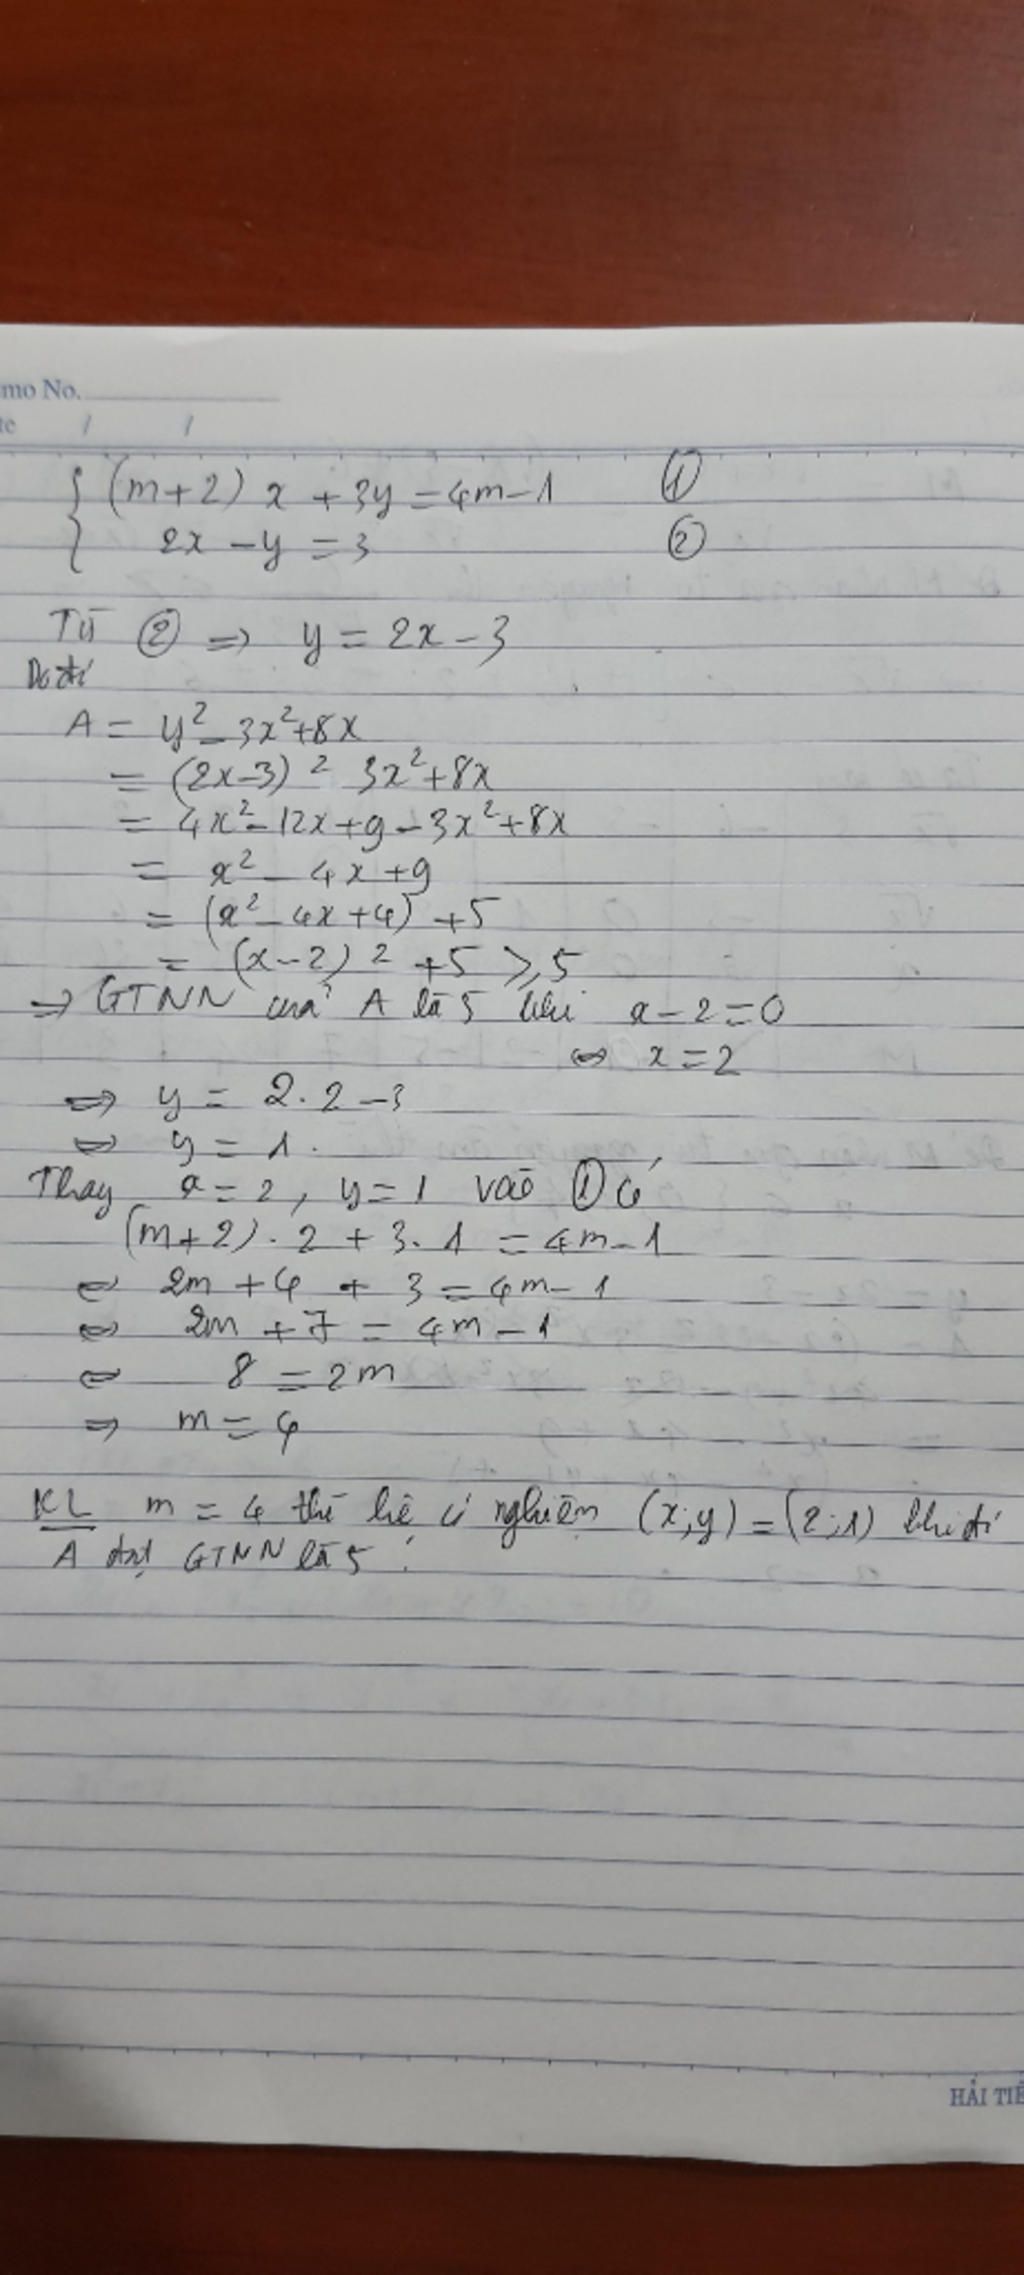 mo No.
te / /
(m+2) x + 3y = 4m - 1 ①
2x - y = 3 ②
Từ ② => y = 2x - 3
Do đó
A = y² - 3x² + 8x
= (2x-3)² 3x² + 8x
= 4x² - 12x + 9 - 3x² + 8x
= x² - 4x + 9
= (x² - 4x + 4) + 5
= (x-2)² + 5 ⩾ 5
=> GTNN của A là 5 khi x - 2 = 0
<=> x = 2
=> y = 2.2 - 3
=> y = 1.
Thay x = 2, y = 1 vào ① có
(m+2).2 + 3.1 = 4m - 1
<=> 2m + 4 + 3 = 4m - 1
<=> 2m + 7 = 4m - 1
<=> 8 = 2m
=> m = 4
KL m = 4 thì hệ có nghiệm (x;y) = (2;1) khi đó
A đạt GTNN là 5.
HẢI TIẾ